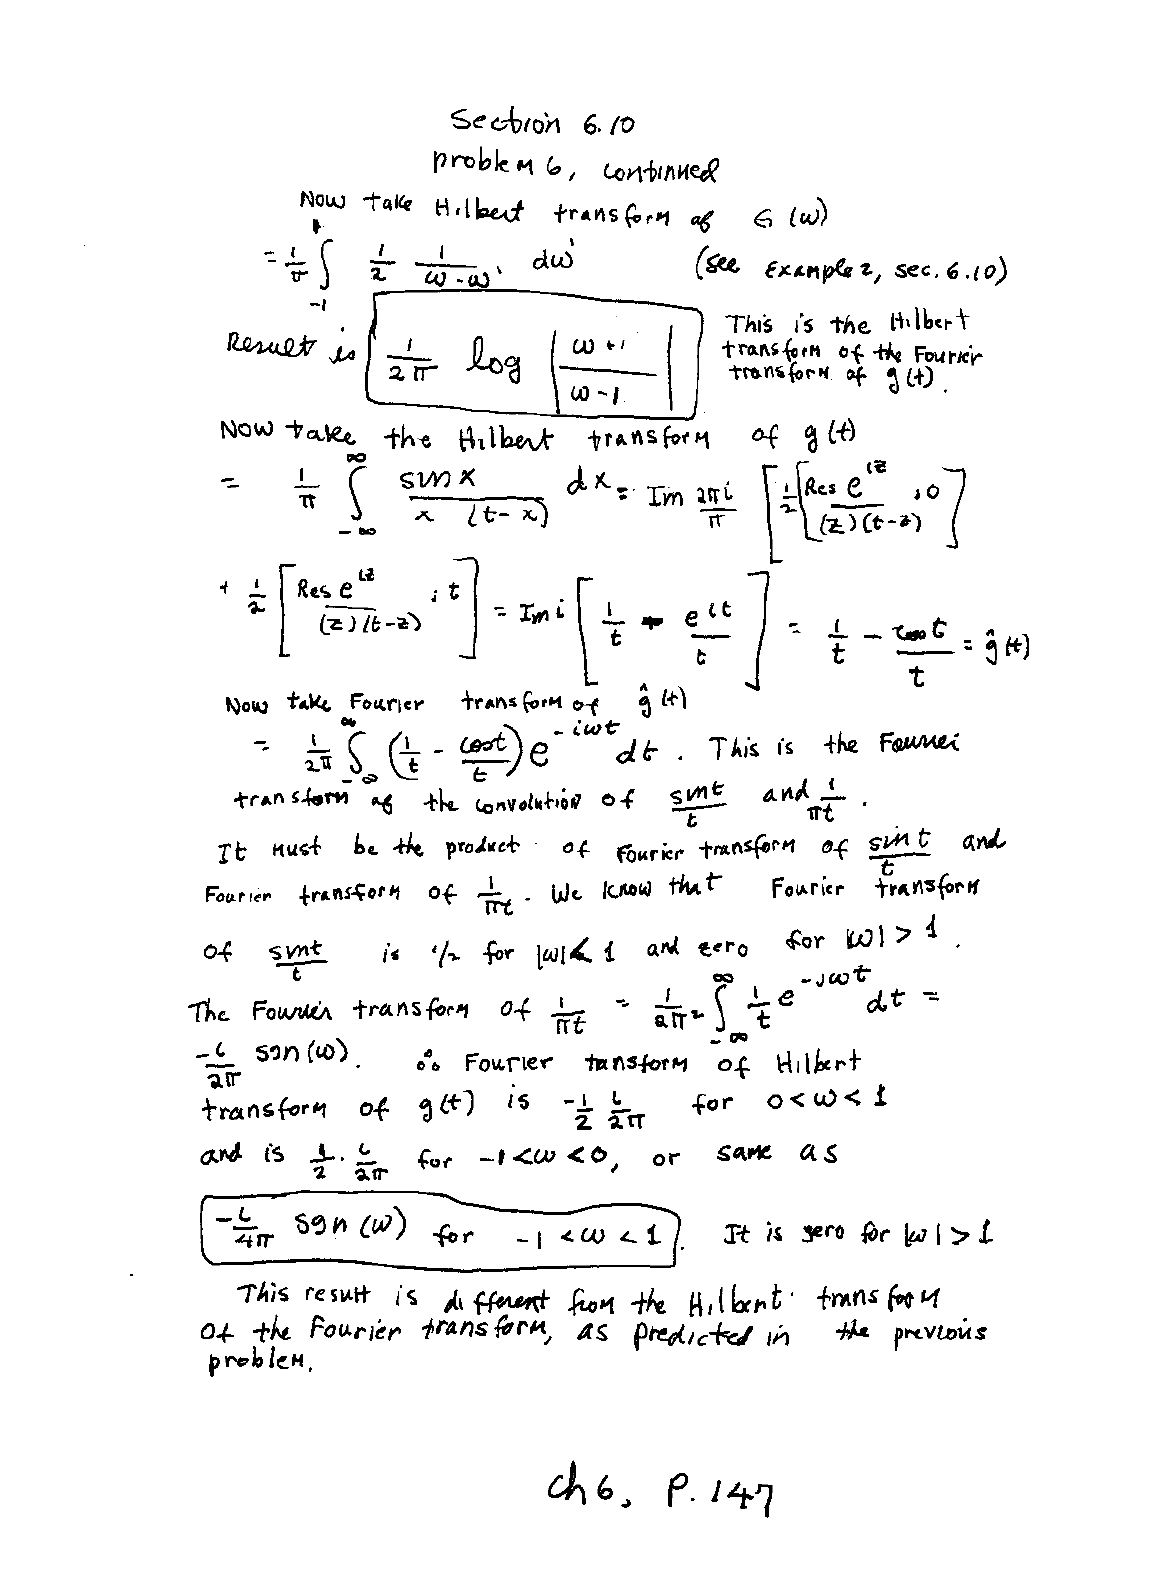 Section 6.10
problem 6, continued
Now take Hilbert transform of G(ω)
= 1/π ∫_{-1}^{1} 1/2 1/(ω-ω') dω' (see Example 2, sec. 6.10)
Result is 1/(2π) log |(ω+1)/(ω-1)| This is the Hilbert
transform of the Fourier
transform of g(t).
Now take the Hilbert transform of g(t)
= 1/π ∫_{-∞}^{∞} sin x/(x (t-x)) dx = Im 2πi/π [1/2 [Res e^{iz}/((z)(t-z)) ; 0]
+ 1/2 [Res e^{iz}/((z)(t-z)) ; t] = Im i [1/t - e^{it}/t] = 1/t - cos t/t = ĝ(t)
Now take Fourier transform of ĝ(t)
= 1/(2π) ∫_{-∞}^{∞} (1/t - cos t/t) e^{-iωt} dt. This is the Fourier
transform of the convolution of sin t/t and 1/(πt).
It must be the product of Fourier transform of sin t/t and
Fourier transform of 1/(πt). We know that Fourier transform
of sin t/t is 1/2 for |ω| < 1 and zero for |ω| > 1.
The Fourier transform of 1/(πt) = 1/(2π²) ∫_{-∞}^{∞} 1/t e^{-iωt} dt =
-i/(2π) sgn(ω). ∴ Fourier transform of Hilbert
transform of g(t) is -1/2 i/(2π) for 0<ω<1
and is 1/2 · i/(2π) for -1<ω<0, or same as
-i/(4π) sgn(ω) for -1<ω<1. It is zero for |ω|>1
This result is different from the Hilbert transform
of the Fourier transform, as predicted in the previous
problem.
ch 6, p. 147